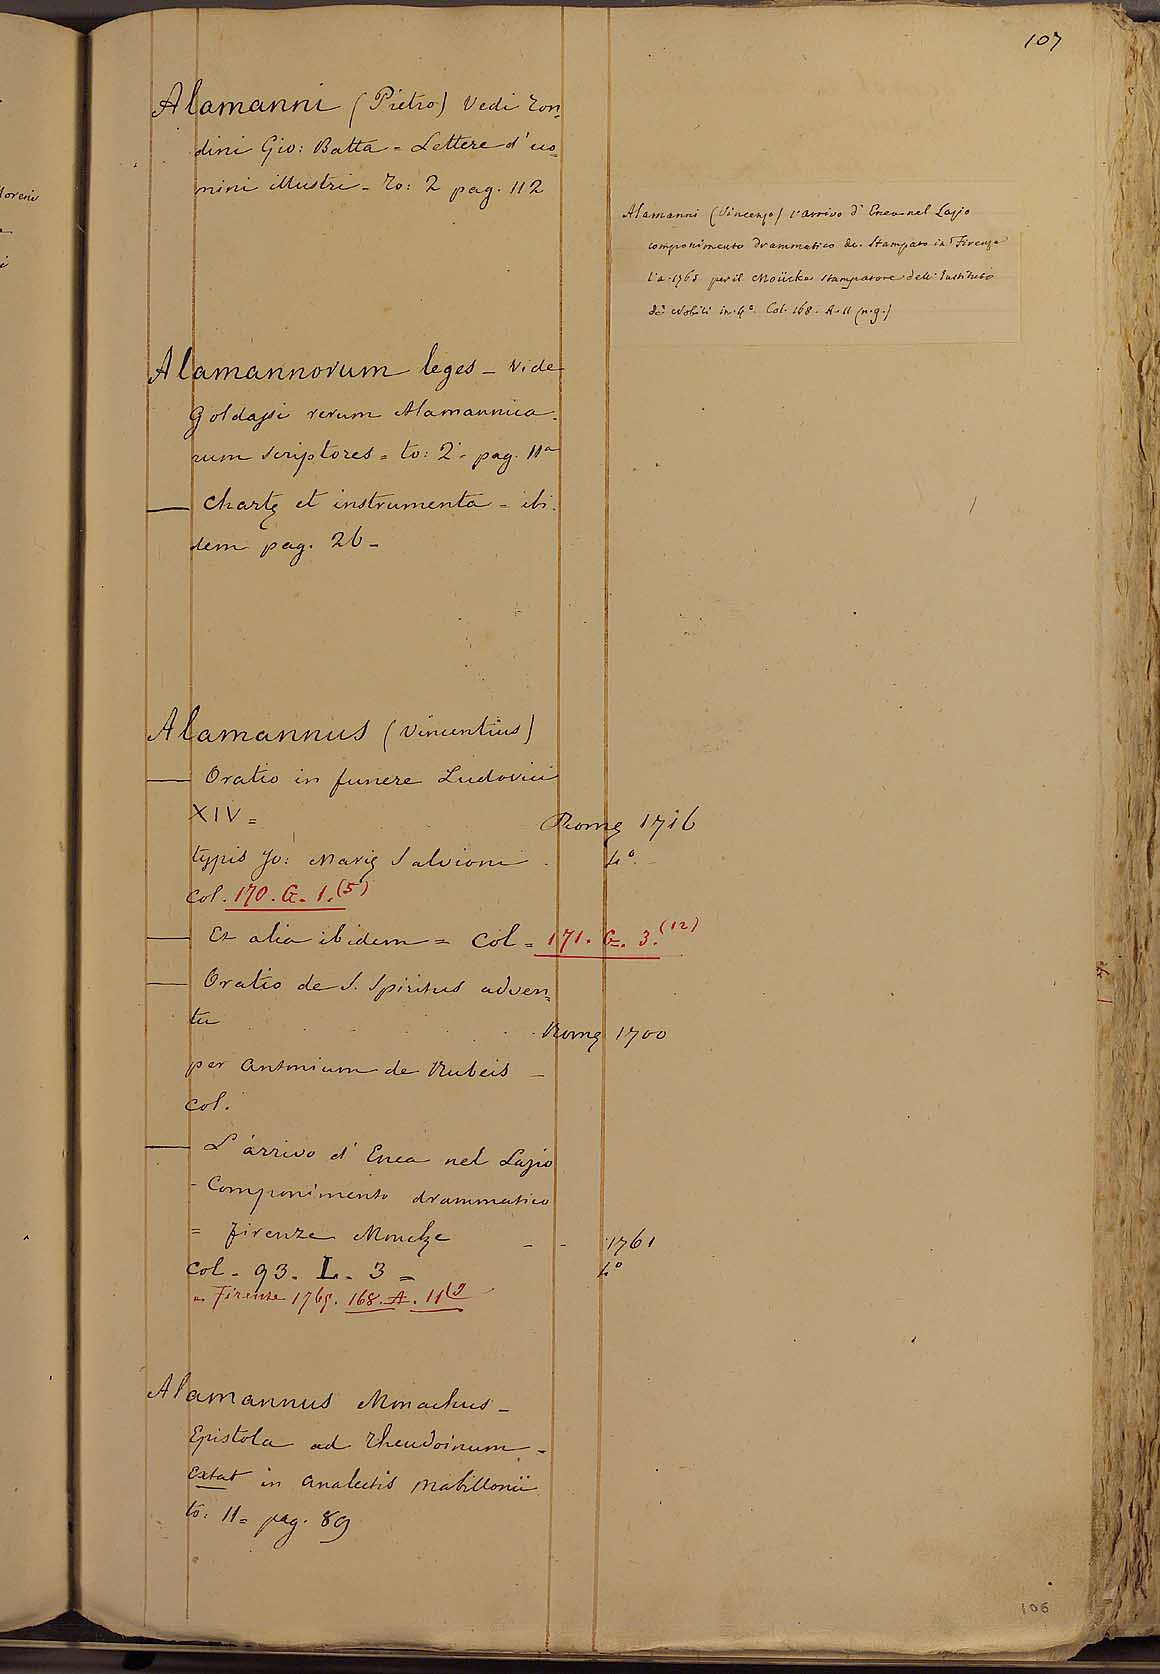 107
Alamanni (Pietro) Vedi Zon=
dini Gio: Batta = Lettere d'uo=
mini illustri - To: 2 pag. 112
Alamanni (Vincenzo) l'arrivo d'Enea nel Lazio
componimento drammatico &c. Stampato in Firenze
l'a. 1765 per il Moücke stampatore dell'Instituto
de' Nobili in 4º. Col. 168. A. 11 (n. 9.)
Alamannorum leges - Vide
Goldasti rerum Alamannica-
rum scriptores = to: 2. pag. 11a
— Chartę et instrumenta - ibi.
dem pag. 26 -
Alamannus (Vincentius)
— Oratio in funere Ludovici
XIV = Romę 1716
typis Jo: Marię Salvioni - 4º. -
Col. 170. G. 1. (5)
— Et alia ibidem = Col = 171. G. 3. (12)
— Oratio de S. Spiritus adven=
tu Romę 1700
per Antonium de Rubeis -
Col.
— L'arrivo d'Enea nel Lazio
- Componimento drammatico
= Firenze Moucke - - 1761
Col - 93. L. 3 = 4º
" Firenze 1765. 168. A. 11(9
Alamannus Monachus -
Epistola ad Theudoinum -
Extat in analectis Mabillonii
to: 11 = pag. 89
106